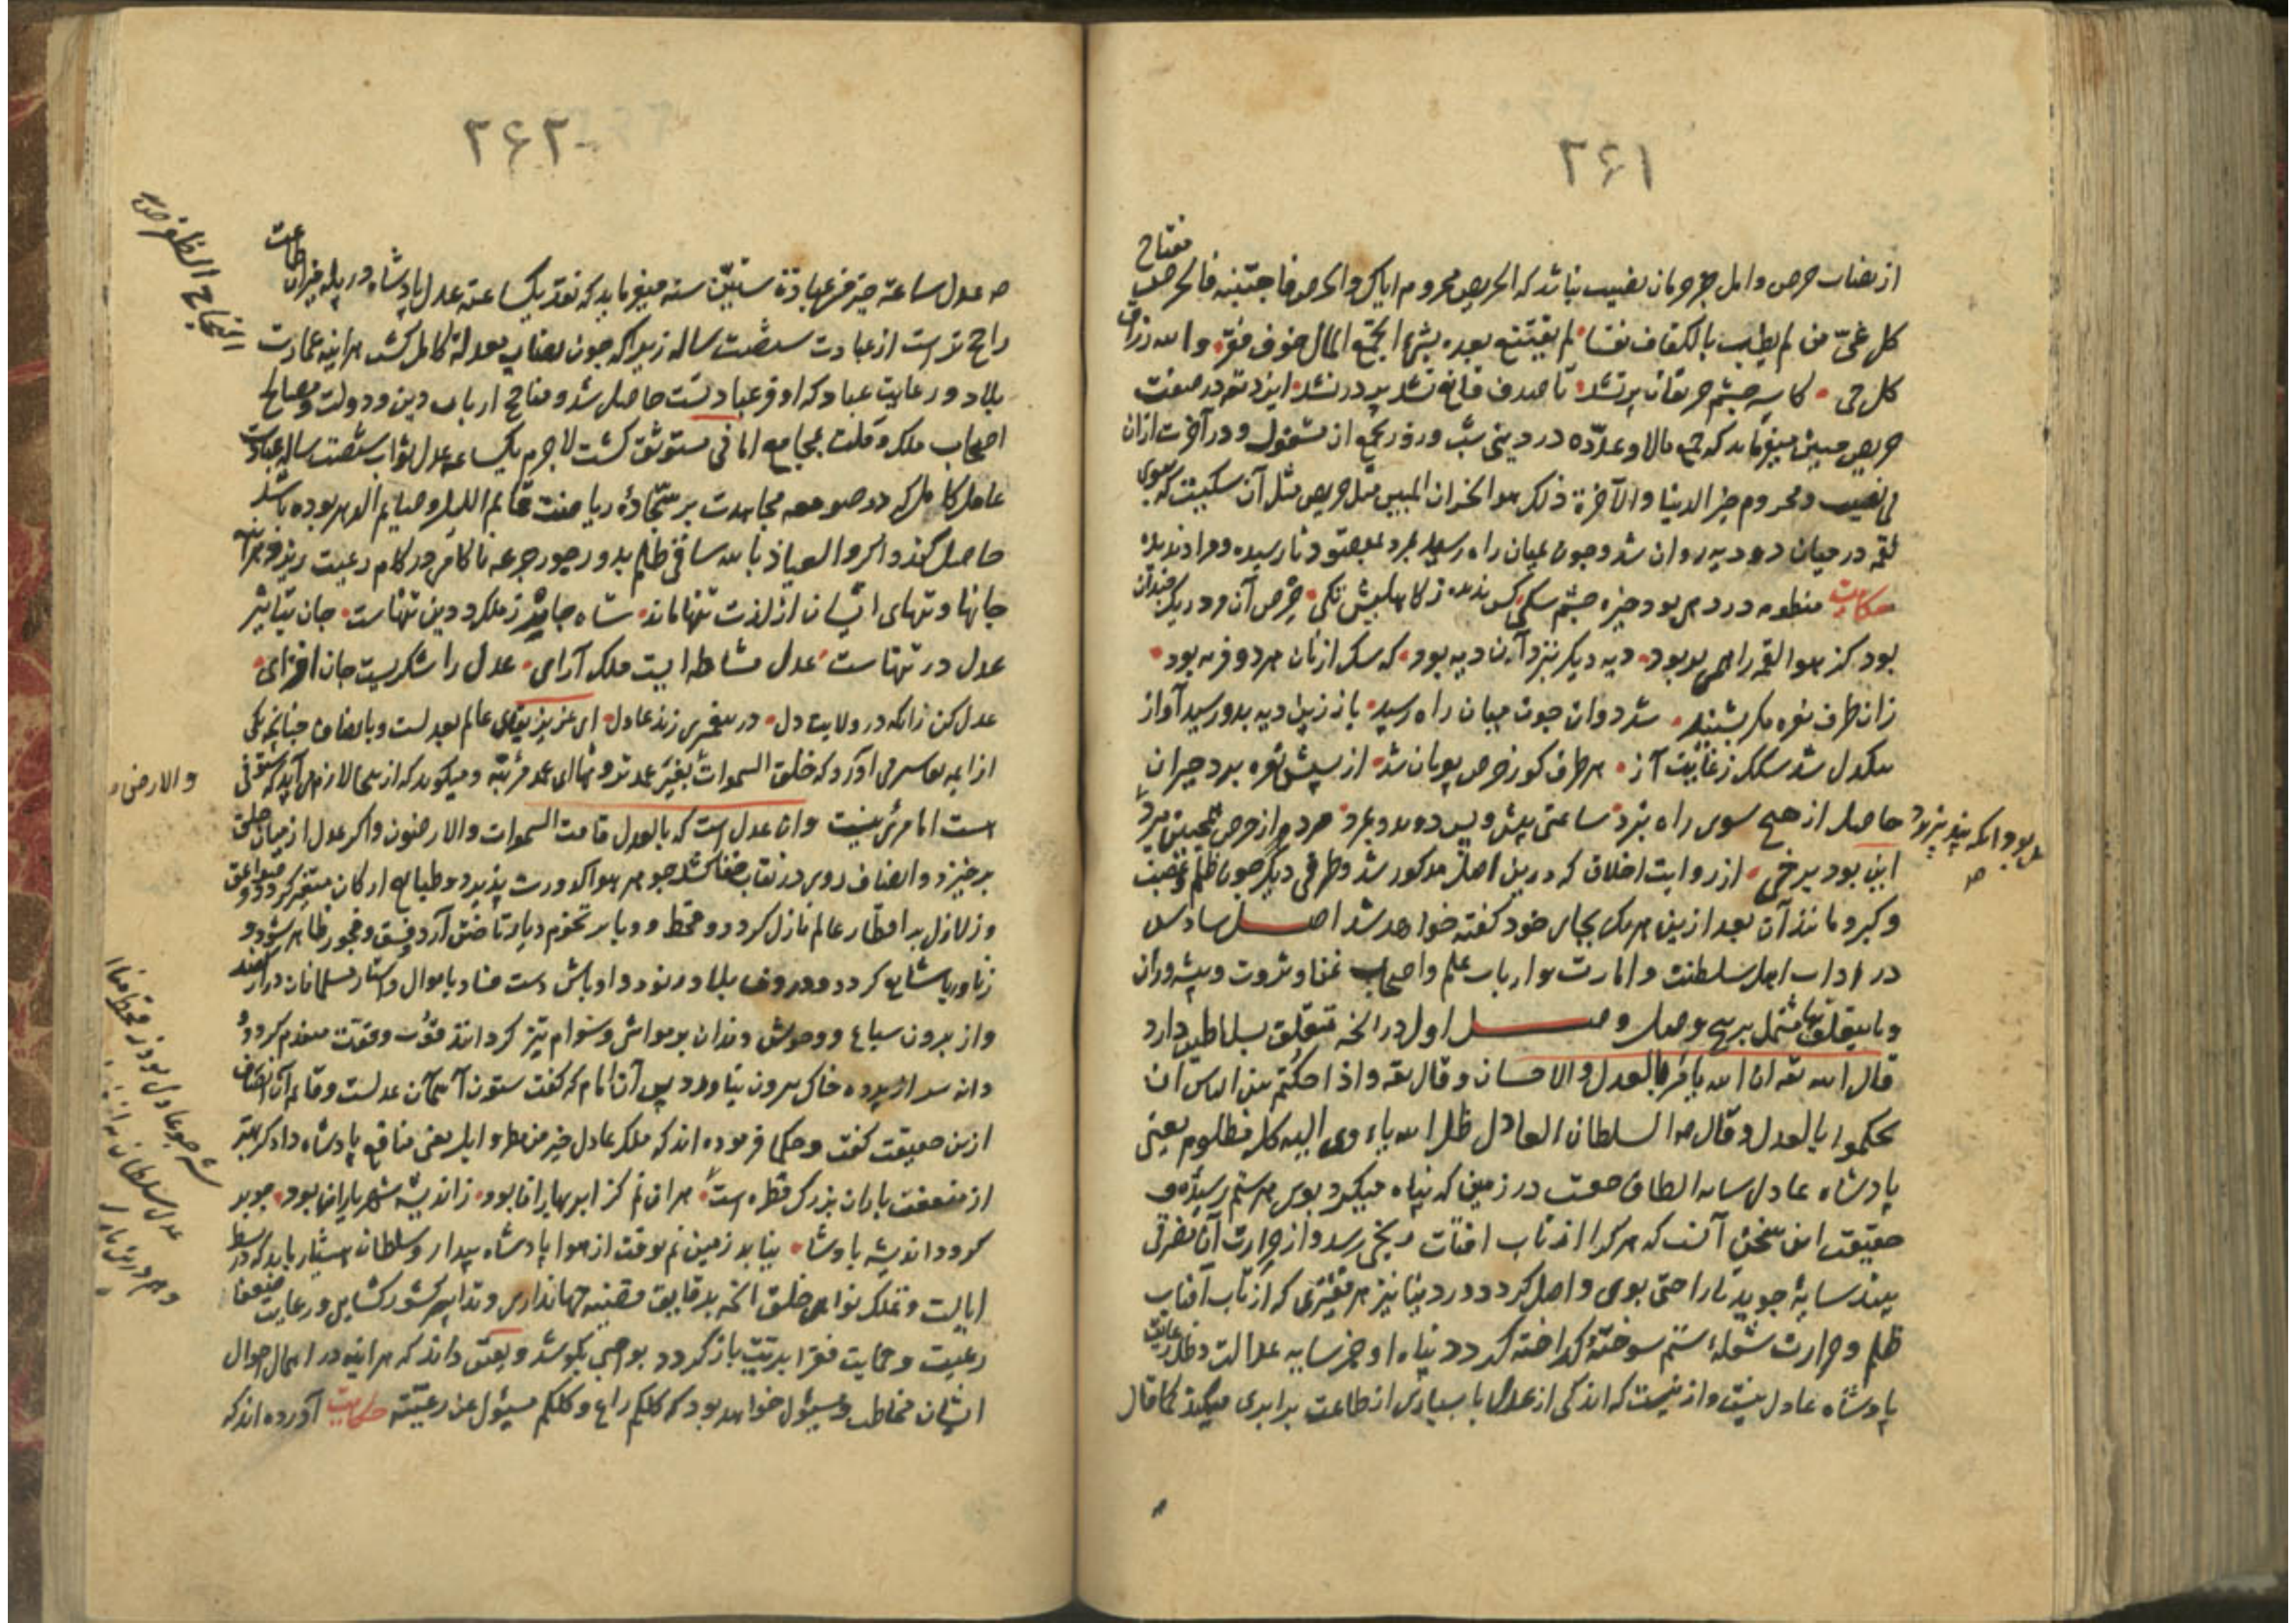 ۲۶۱
مفتاح
از نصاب حرص و امل جز حرمان نصیب نباشد که الحریص محروم ایاک والحرص فاجتنبه فالحرص
کل غی من لم یطب بالکفاف نفسا لم یقتنع بعده بشیء الجمع المال خوف فقر والله رزاق
کل حی کاسه چشم حریصان پر نشد تا صدف قانع نشد پر در نشد ایزد تع در صفت
حریص میفرماید که جمع مالا وعدده در دینی شب و روز بجمع آن مشغول و در آخرت ازان
بی نصیب و محروم خسر الدنیا والآخرة ذلک هو الخسران المبین مثل حریص مثل آن سگیست که بوی
لقمه در میان دو دیه روان شد و چون بمیان راه رسید بمرد بمقصود نارسیده و مراد ندیده
حکایت منظومه در دهی بود خیره چشم سگی کس ندیده ز کاهلیش تگی حرص آن در یک چندان
بود کز هوا لقمه را همی بربود دیه دیگر نزد آن دیه بود که سگ از نان هر دو فربه بود
زان طرف نعره مگر بشنید شد دوان چون میان راه رسید باز زین دیه بدو رسید آواز
سگدل شد سگک ز غایت آز هر طرف کو ز حرص پویان شد از پیش نعره برد حیران
حاصل از هیچ سوی راه نبرد ساعتی پیش و پس دوید و بمرد مردم از حرص همچنین میرد
این بود برخی از روایت اخلاق که درین اصل مذکور شد و طرفی دیگر چون ظلم و غضب
و کبر و مانند آن بعد ازین هر یک بجای خود گفته خواهد شد اصل سادس
در اداب اهل سلطنت و امارت و ارباب علم و اصحاب غنا و ثروت و پیشه وران
و ما یتعلق بها مشتمل بر پنج وصل وصل اول در آنچه متعلق بسلاطین دارد
قال الله تعه ان الله یأمر بالعدل والاحسان وقال تعه واذا حکمتم بین الناس ان
تحکموا بالعدل وقال صـ السلطان العادل ظل الله یاوی الیه کل مظلوم یعنی
پادشاه عادل سایه الطاف حقست در زمین که پناه میگیرد بوی هر ستم رسیده و
حقیقت این سخن آنست که هر کرا از تاب افتاب رنجی رسد و از حرارت آن نضرتی
بیند سایهٔ جوید تا راحتی بوی واصل گردد و در دینا نیز هر مفتقری که از تاب آفتاب
ظلم و حرارت شعلهٔ ستم سوختهٔ گداخته گردد پناه او جز سایه عدالت و ظل عنایت
پادشاه عادل نیست و ازینست که اندکی از عدل با بسیاری از طاعت برابری میکند کما قال
۲۶۲
طاعت
صـ عدل ساعة خیر من عبادة ستین سنه میفرماید که نقد یکساعته عدل پادشاه در پله میزان
راجح تر است از عبادت شصت ساله زیرا که چون نصاب معدلة کامل گشت هر اینه عمارت
بلاد و رعایت عباد که اوفر عبادتست حاصل شد و مناجح ارباب دین و دولت و مصالح
اصحاب ملک و ملت بمجامع امانی مستوثق گشت لاجرم یکساعته عدل ثواب شصت ساله عبادت
عامل کامل که در صومعه مجاهدت بر سجادهٔ ریاضت قایم اللیل و صایم الدهر بوده باشد
حاصل کند و اگر والعیاذ بالله ساقی ظلم بدور جور جرعه ناکامی در کام رعیت ریزد هر آینه
جانها و تنهای ایشان از لذت تنها ماند شاه جابر ز ملک و دین تنهاست جان بتاثیر
عدل در تنهاست عدل مشاطه ایست ملک آرای عدل را شکریست جان افزای
عدل کن زانکه در ولایت دل در پیغمبری زند عادل ای عزیز بقای عالم بعدلست و بانصاف چنانچه یکی
از ایمه تفاسیر می آورد که خلق السموات بغیر عمد ترونها ای عمد مرئیة و میگوید که از اینجا لازم می آید که ستونی
هست اما مرئی نیست وان عدل است که بالعدل قامت السموات والارضون و اگر عدل از میان خلق
برخیزد و انصاف روی در نقاب خفا کشد جوهر هوا کدورت پذیرد و طبایع ارکان متغیر گردد و صواعق
و زلازل بر اقطار عالم نازل گردد و قحط و وبا بر تخوم دیار تاختن آرد و فسق و فجور ظاهر شود و
زنا و ربا شایع گردد و در بلاد رنود و اوباش دست فساد باموال و استار مسلمانان دراز کنند
و از برون سباع و وحوش دندان بر مواشی و سوام تیز گردانند قوت وقت منعدم گردد و
دانه سر از پرده خاک بیرون نیاورد پس آن امام که گفت ستون آسمان عدلست و قایم آن انصاف
ازین حقیقت گفت و حکما فرموده اند که ملک عادل خیر من مطر وابل یعنی منافع پادشاه دادگر بهتر
از منفعت باران بزرگ قطره است هر ان نم کز ابر بهاران بود ز اندیشه شهریاران بود چو بد
گردد اندیشه پادشاه نیابد زمین نم بوقت از هوا پادشاه بیدار و سلطان هشیار باید که در بسط
ایالت و تملک نواصی خلق آنچه بدقایق جهانداری و تدابیر کشور گشایی و رعایت ضعفا
رعیت و حمایت فقرا بدیشان باز گردد بواجبی بکوشد و یقین داند که هر اینه در اهمال احوال
ایشان مخاطب و مسئول خواهد بود که کلکم راع وکلکم مسئول عن رعیته حکایت آورده اند که
النجاح الظفر ص
والارض
شه چو عادل بود ز قحط منال
عدل سلطان به از